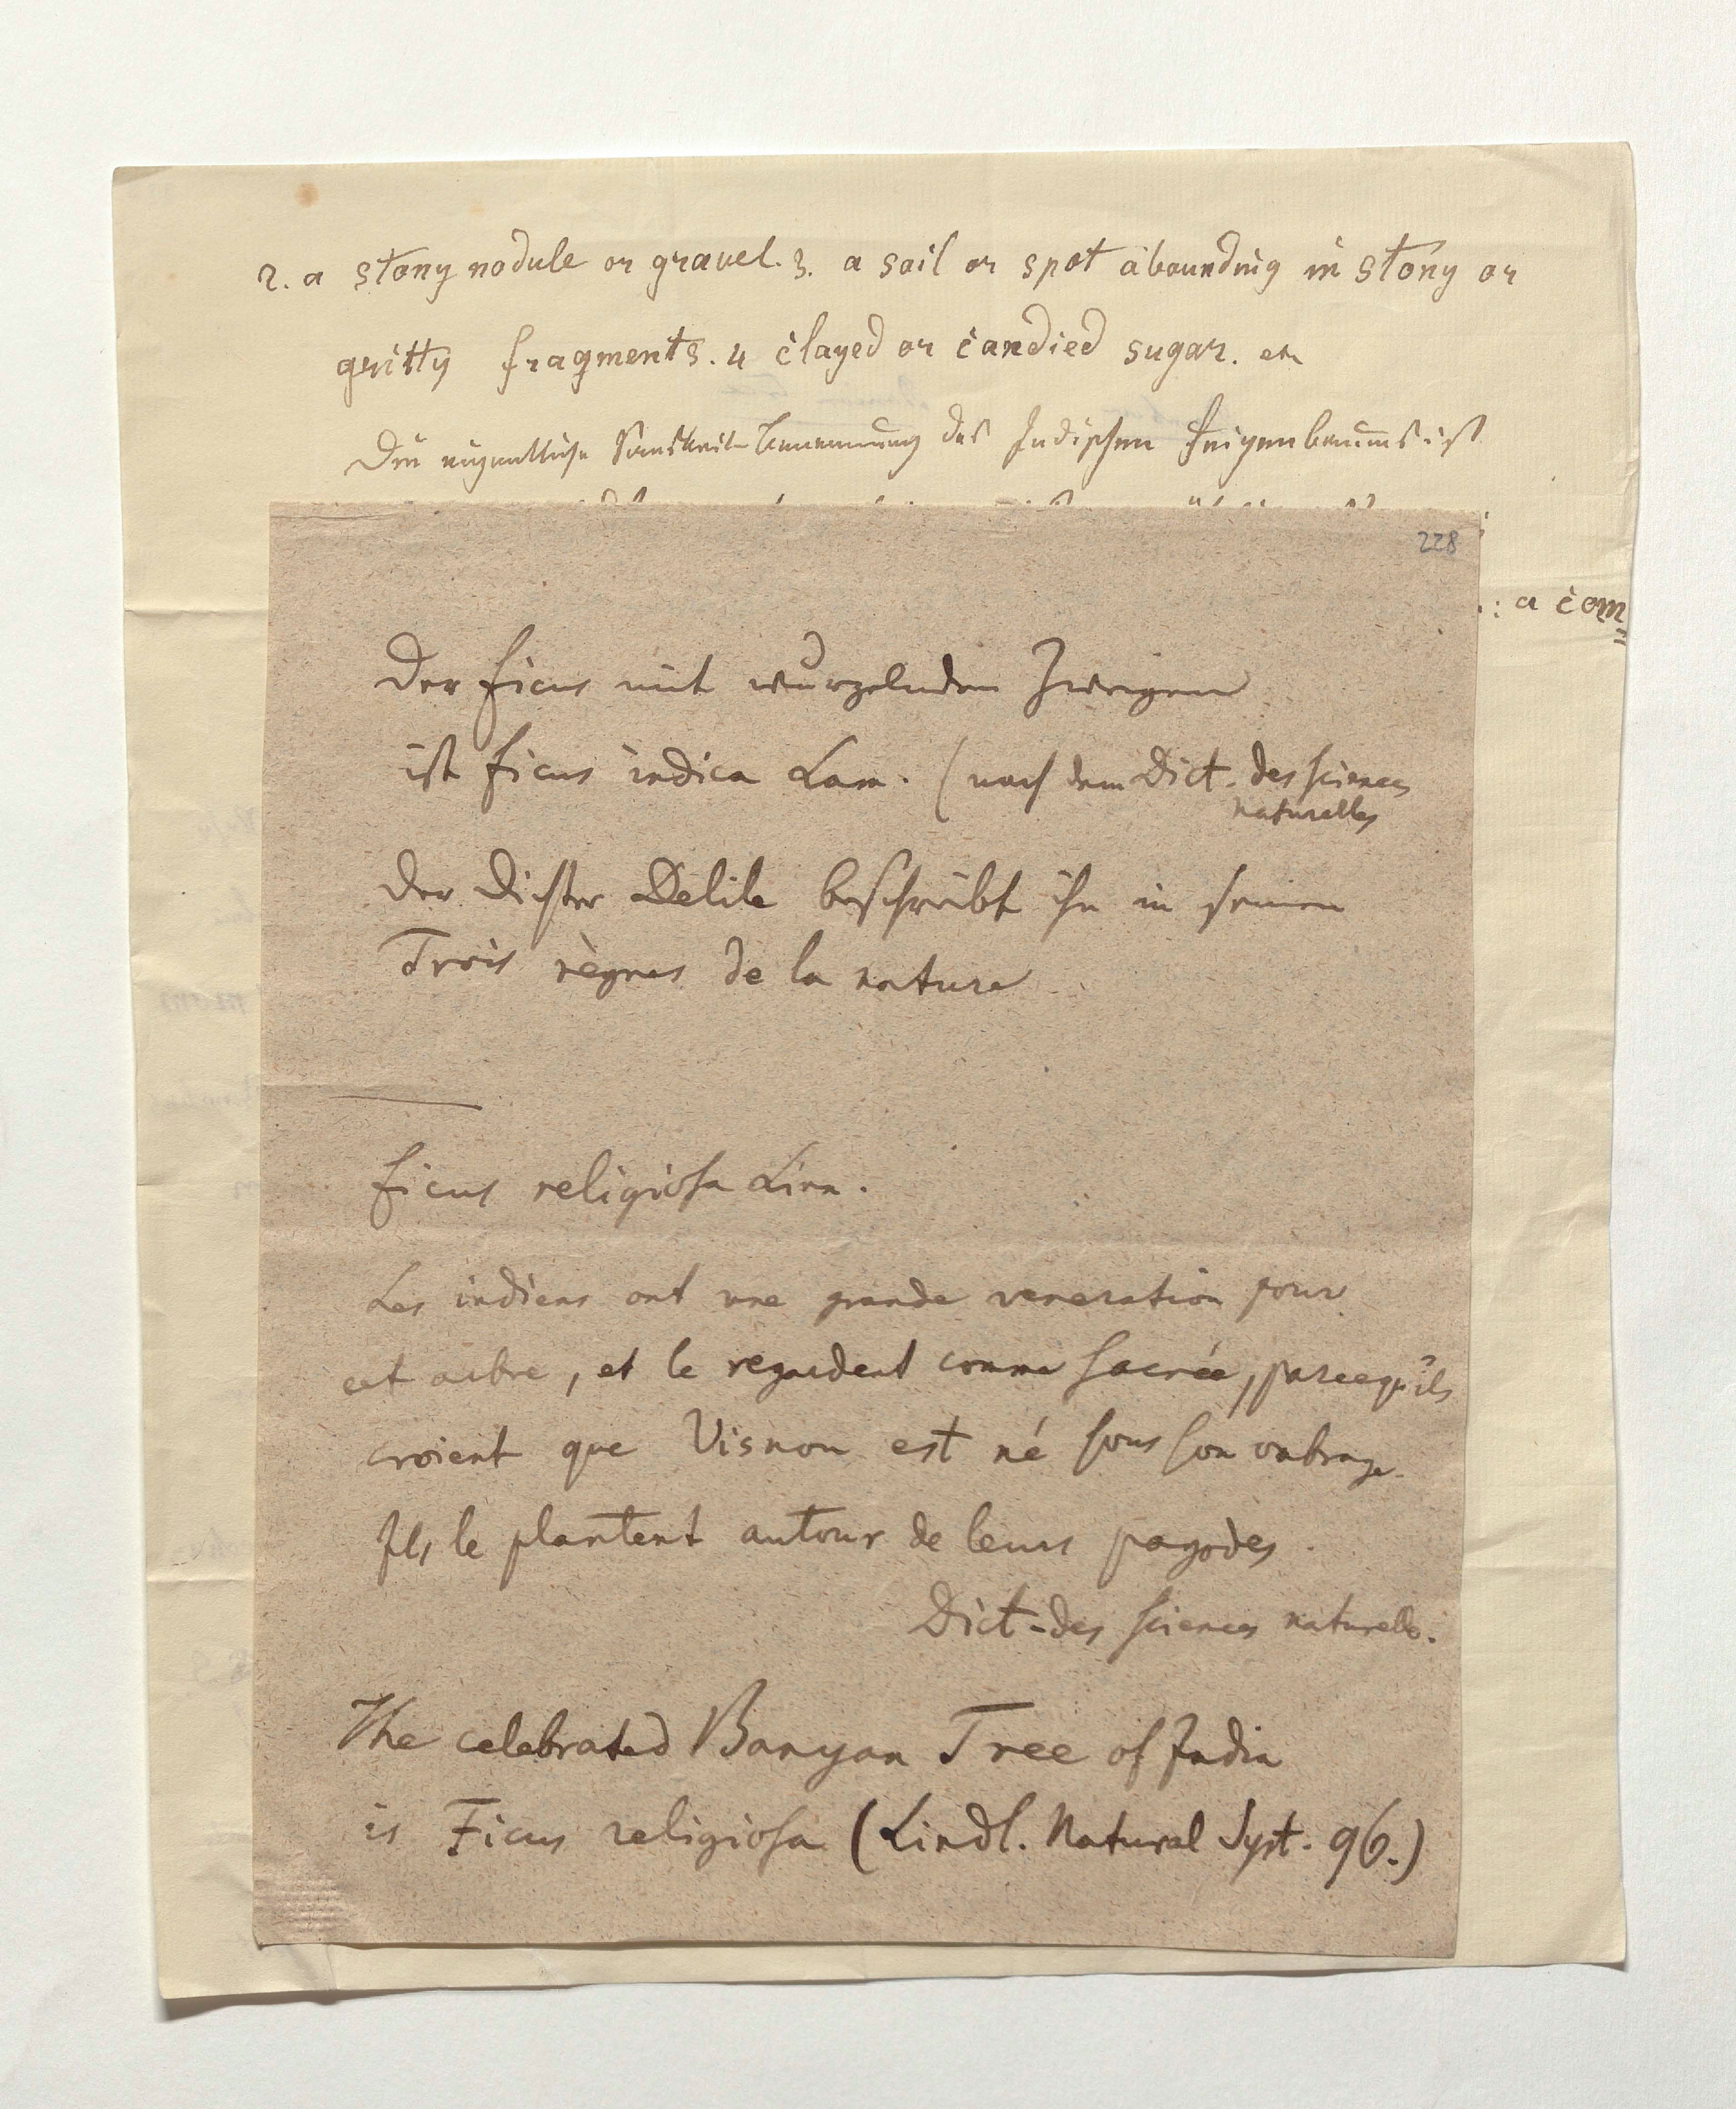 2. a stony nodule or gravel. 3. a soil or spot abounding in stony or
gritty fragments. 4 clayed or candied sugar. etc
Die eigentliche Sanskrit-Benennung des Indischen Feigenbaums ist
: a com=
228
Der Ficus mit wurzelnden Zweigen
ist Ficus indica Lam. (nach dem Dict. des sciences
naturelles
Der Dichter Delile beschreibt ihn in seinen
Trois règnes de la nature
Ficus religiosa Linn.
Les indiens ont une grande veneration pour
cet arbre, et le regardent comme sacrée, parcequ'ils
croient que Visnou est né sous son ombrage.
Ils le plantent autour de leurs pagodes.
Dict. des sciences naturelles.
The celebrated Banyan Tree of India
is Ficus religiosa (Lindl. Natural Syst. 96.)